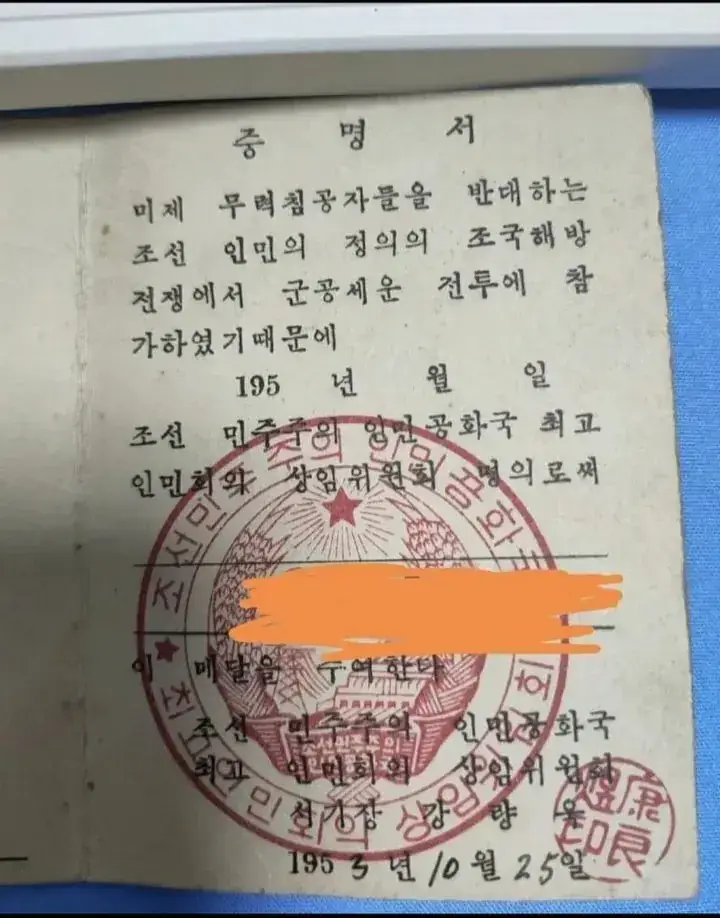 증 명 서
미제 무력침공자들을 반대하는
조선 인민의 정의의 조국해방
전쟁에서 군공세운 전투에 참
가하였기때문에
195 년 월 일
조선 민주주의 인민공화국 최고
인민회의 상임위원회 명의로써
이 메달을 수여한다
조선 민주주의 인민공화국
최고 인민회의 상임위원회
서기장 강 량 욱
1953년 10월 25일
조선민주주의인민공화국
최고인민회의 상임위원회
康良煜印